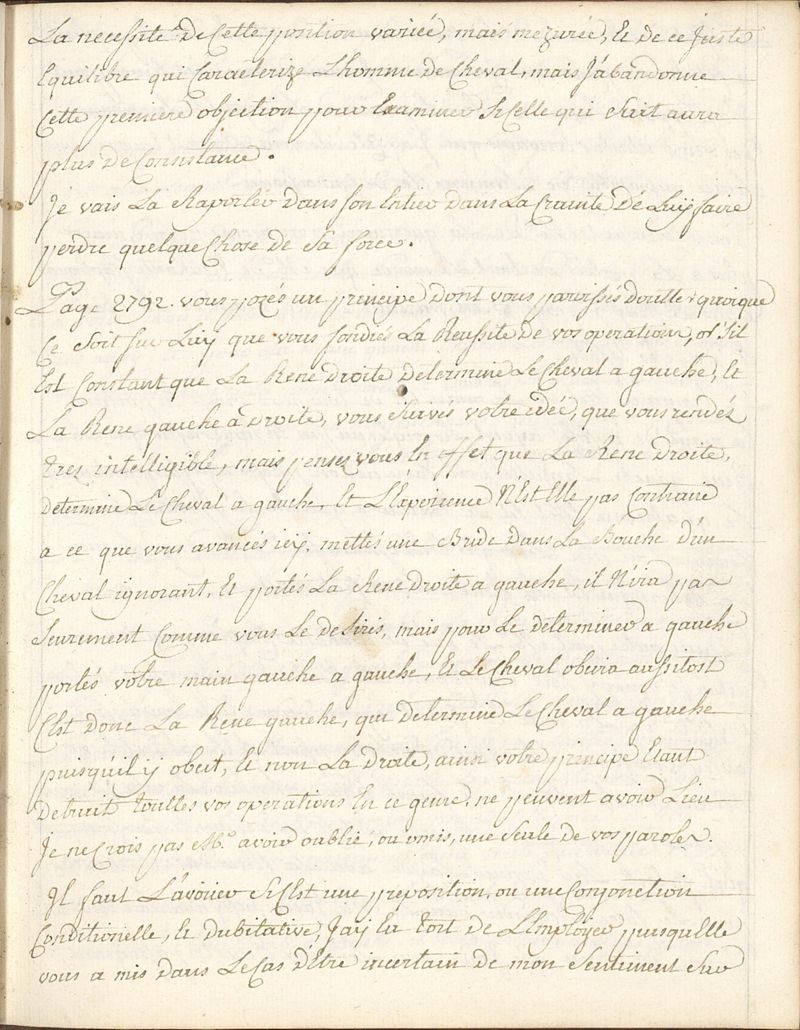 La necessité de Cette position variée, mais mezurée, Et de ce Juste
Equilibre qui Caracterize L'homme de Cheval, mais J'abandonne
Cette premiere objection pour Examiner Si Celle qui Suit aura
plus de Consistance.
Je vais La Raporter dans son Entier dans La Crainte de Luÿ faire
perdre quelque Chose de Sa force.
Page 2792. vous pozés un principe dont vous paroissés doutter quoique
Ce Soit Sur Luy que vous fondiés La Reussite de vos operations, or S'il
Est Constant que La Rene Droite determine Le Cheval a gauche, Et
La Rene gauche a Droite, vous Suivés votre idée, que vous rendéz
tres intelligible, mais pensez vous En Effet que La Rene Droite,
determine Le Cheval a gauche, Et L'Experience N'Est Elle pas Contraire
a ce que vous avancés icy, mettés une Bride dans La Bouche d'un
Cheval ignorant, Et portés La Rene Droite a gauche, il N'ira pas
Seurement Comme vous Le desirés, mais pour Le determiner a gauche
portés votre main gauche a gauche, Et Le Cheval obeira aussitost
C'Est donc La Rene gauche, qui determine Le Cheval a gauche
puisqu'il ÿ obeit, Et non La Droite, ainsi votre principe Etant
detruit toutles vos operations En ce genre, ne peuvent avoir Lieu
Je ne Crois pas Mr. avoir oublié, ou omis, une Seule de vos paroles.
Il faut L'avoüer Si C'Est une preposition, ou une Conjonction
Conditionelle, Et dubitative, J'aÿ Eu tort de L'Employer puisqu'Elle
vous a mis dans Le Cas d'Etre incertain de mon Sentiment Sur